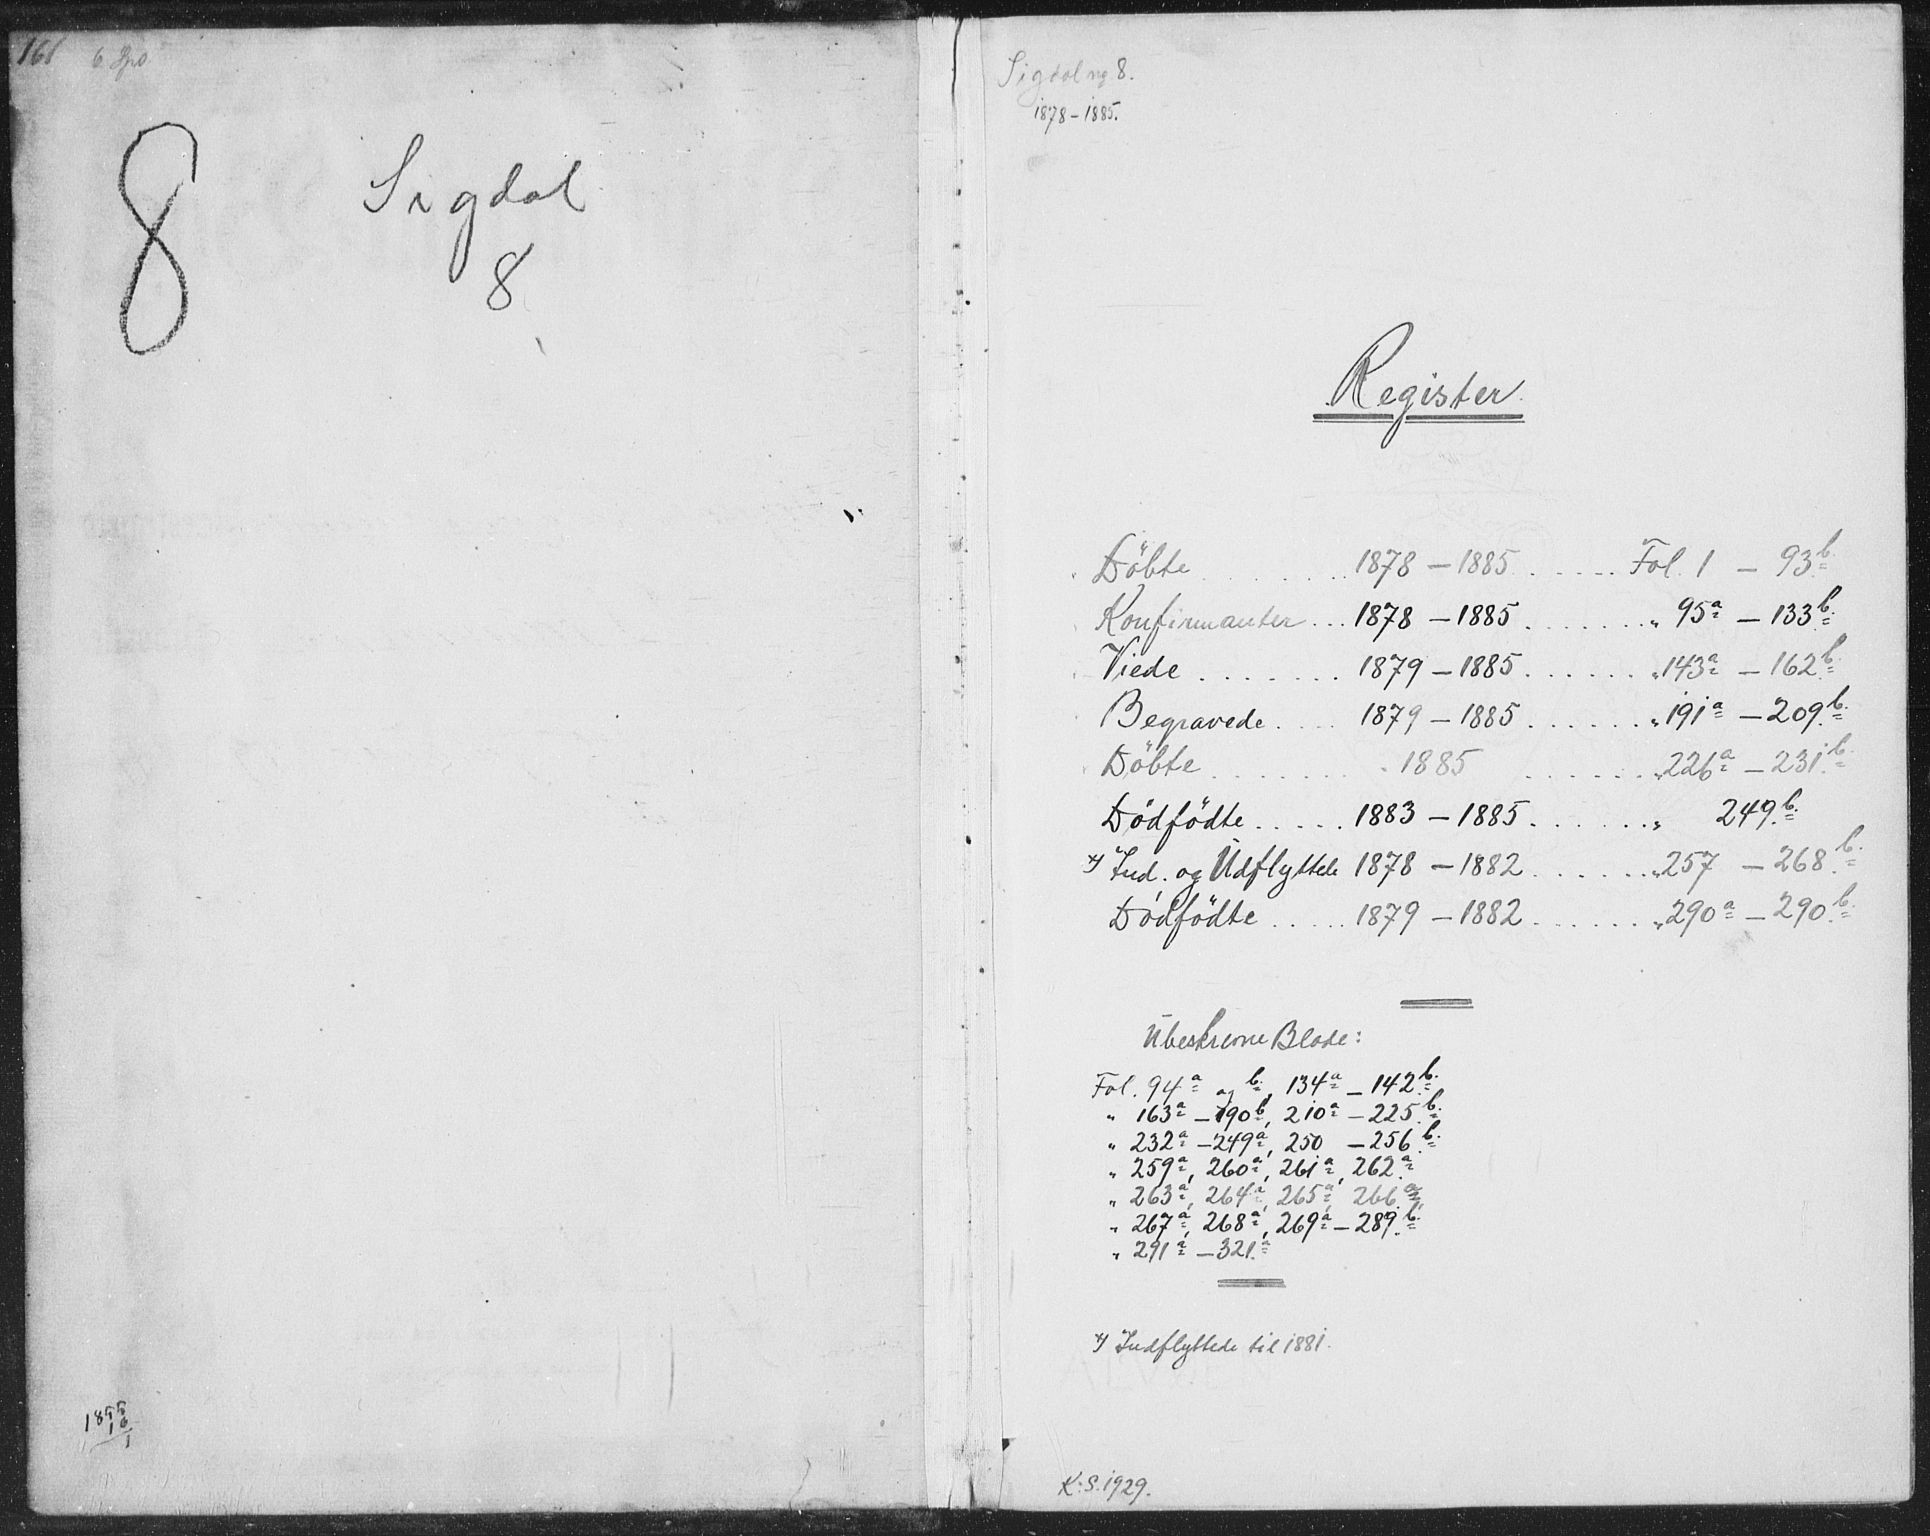 8
Sigdal
8
Sigdal nº 8.
1878 – 1885.
Register
Döbte ........ 1878 – 1885 ...... Fol. 1 – 93b.
Konfirmanter ... 1878 – 1885 ....... " 95a – 133b.
Viede ....... 1879 – 1885 ...... " 143a – 162b.
Begravede .... 1879 – 1885 ...... " 191a – 209b.
Döbte ........ 1885 ...... " 226a – 231b.
Dödfödte ..... 1883 – 1885 ...... " 249b.
*) Ind. og Udflyttede 1878 – 1882 ...... " 257 – 268b.
Dödfödte ..... 1879 – 1882 ...... " 290a – 290b.
Ubeskrevne Blade:
Fol. 94a og b, 134a – 142b.
" 163a – 190b, 210a – 225b.
" 232a – 249a, 250 – 256b.
" 259a, 260a, 261a, 262a
" 263a, 264a, 265a, 266a
" 267a, 268a, 269a – 289b.
" 291a – 321a
*) Indflyttede til 1881.
K.S. 1929.